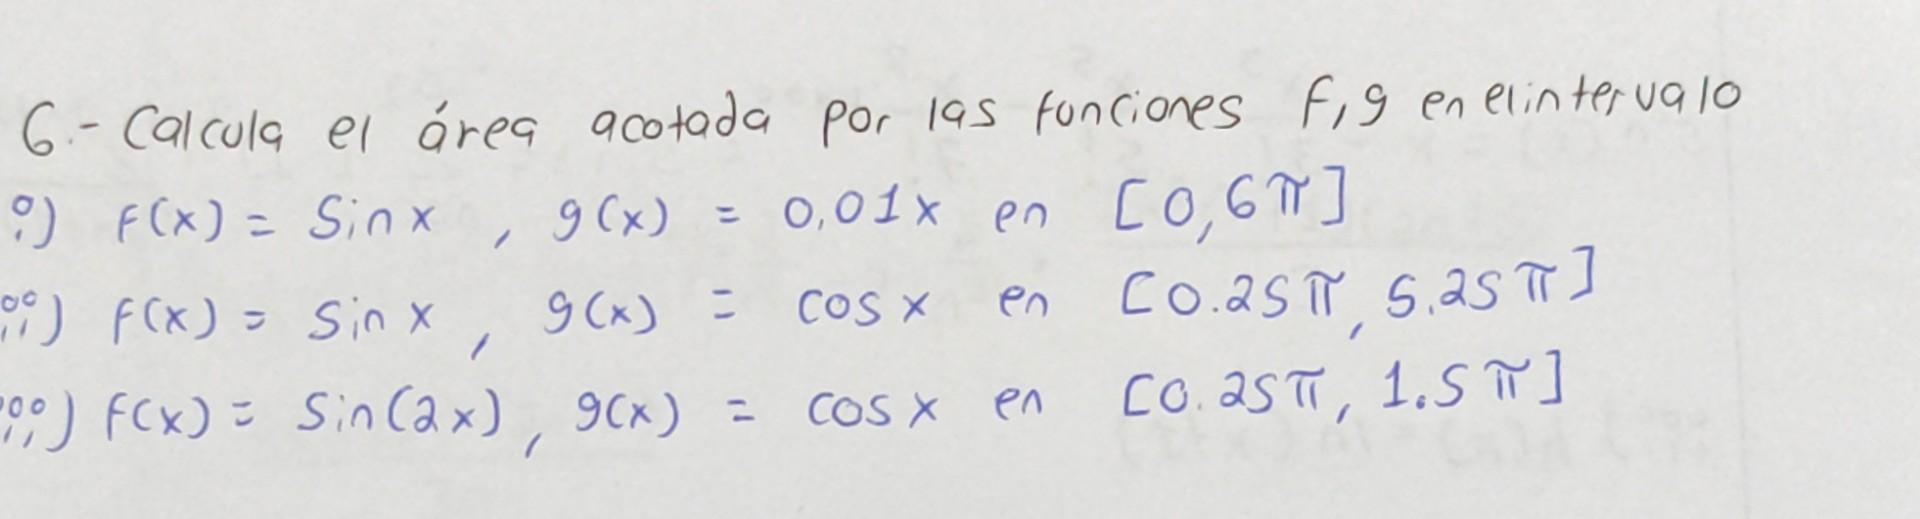 6.- Calcula el área acotada por las funciones f,g en el intervalo
i) f(x) = Sin x , g(x) = 0,01x en [0,6π]
ii) f(x) = Sin x , g(x) = cos x en [0.25π, 5.25π]
iii) f(x) = Sin(2x), g(x) = cos x en [0.25π, 1.5π]